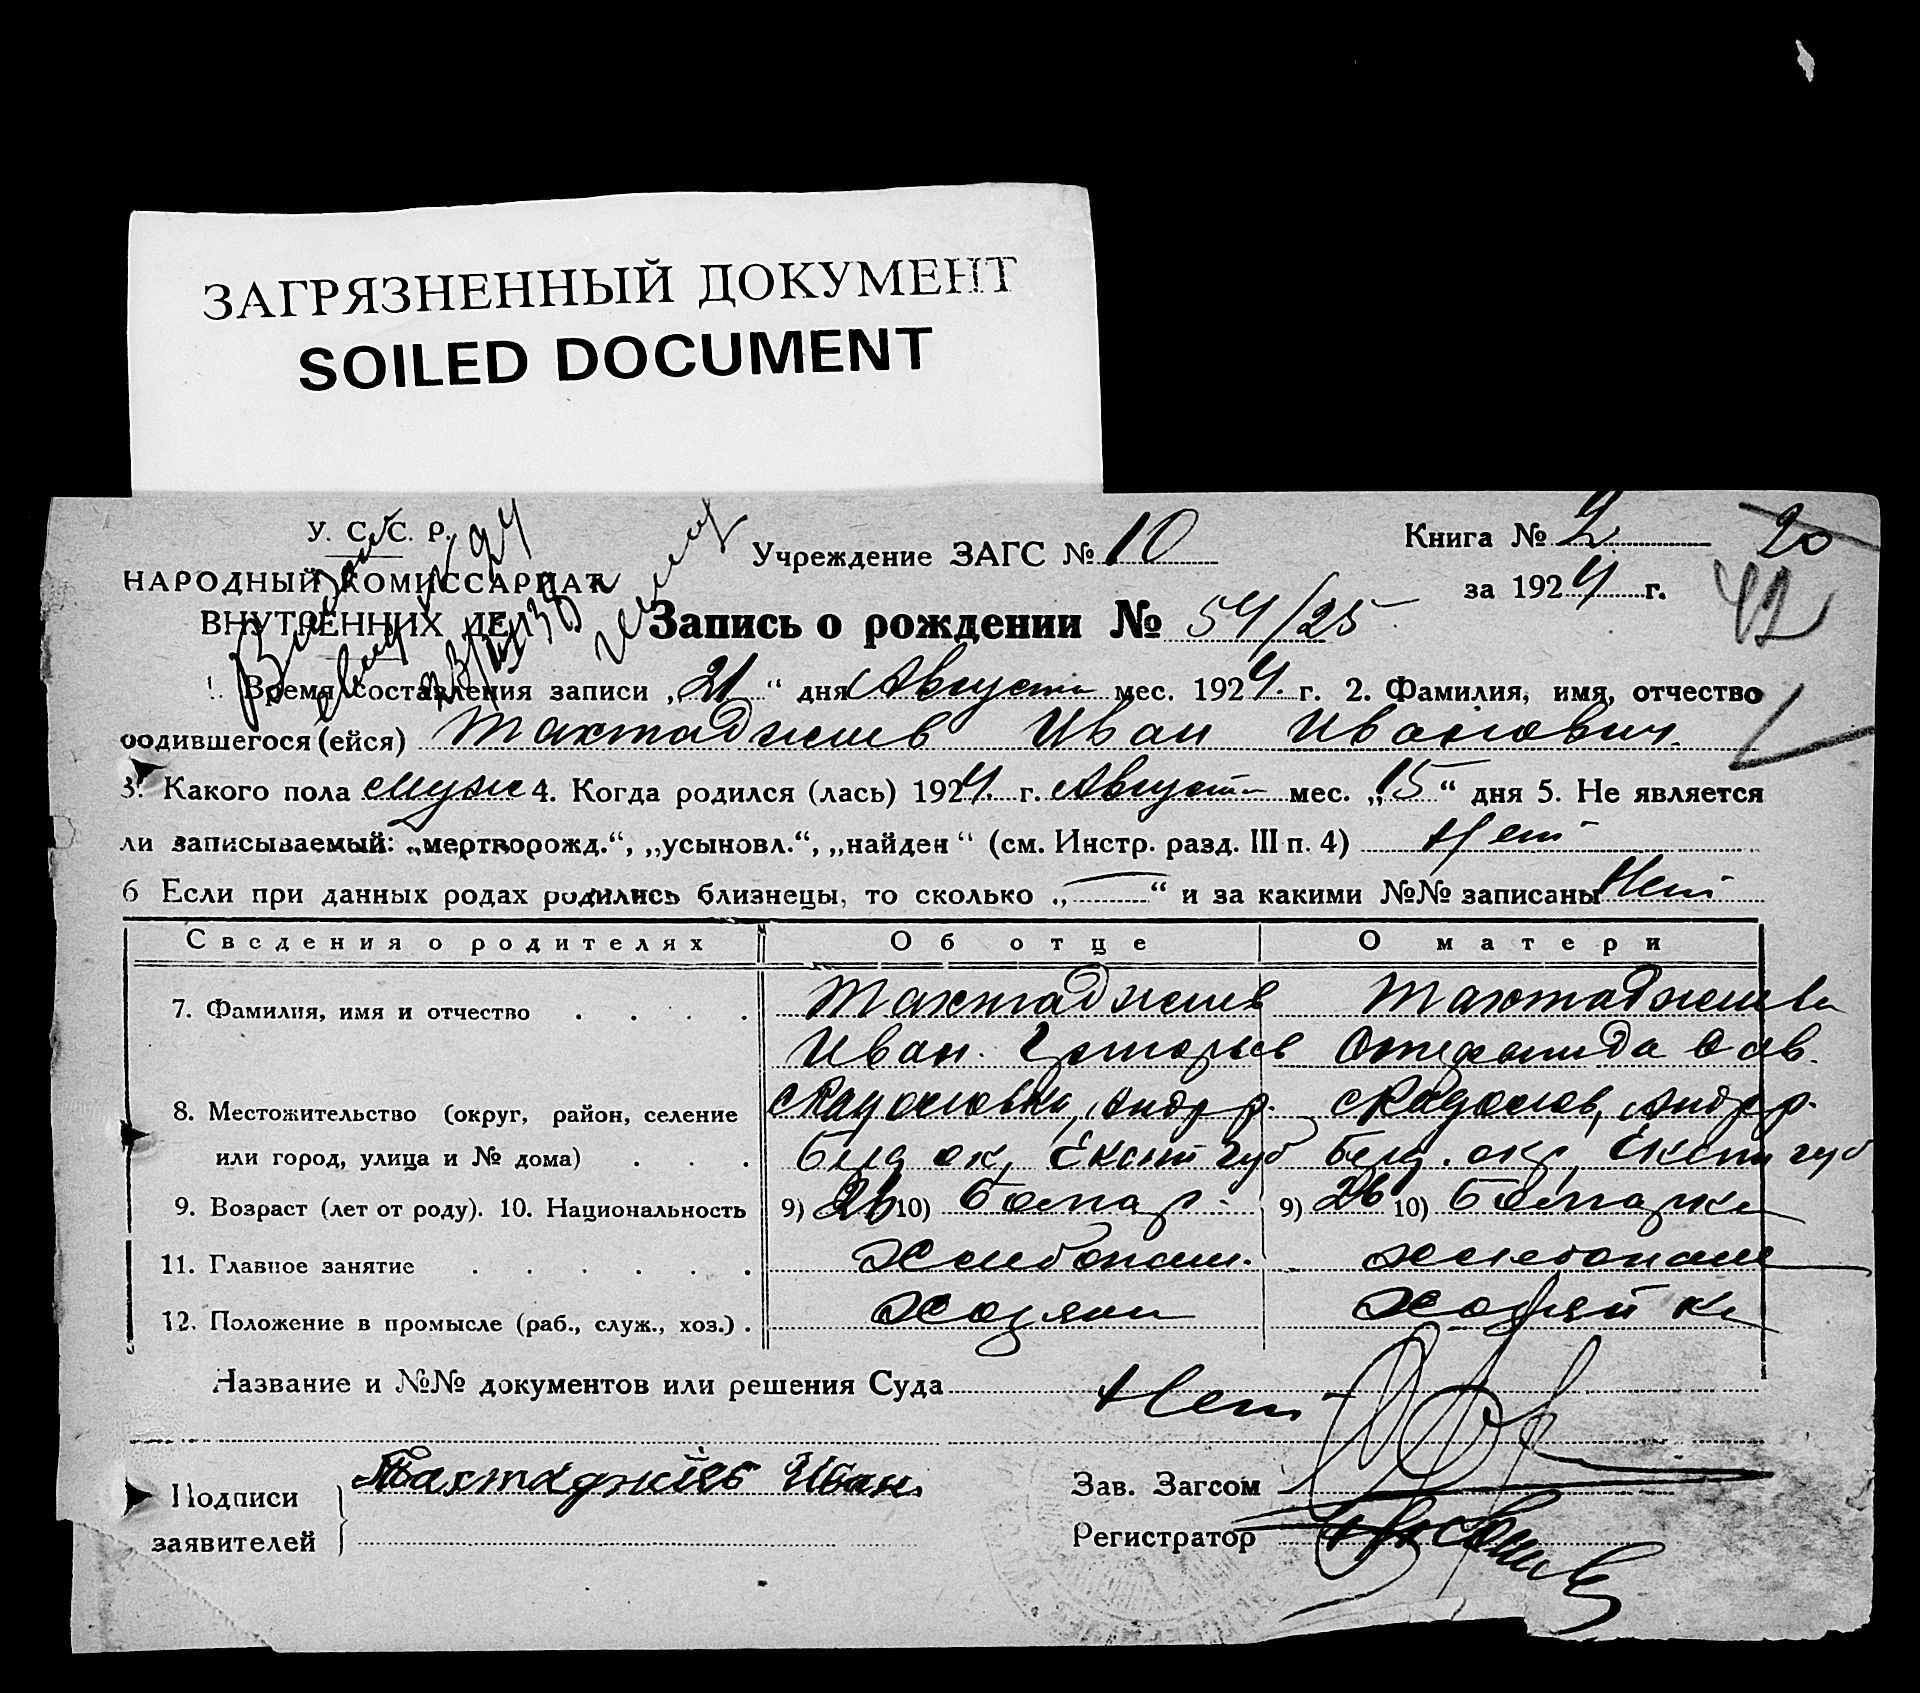 ЗАГРЯЗНЕННЫЙ ДОКУМЕНТ
SOILED DOCUMENT
У. С. С. Р.
НАРОДНЫЙ КОМИССАРИАТ
ВНУТРЕННИХ ДЕЛ
Учреждение ЗАГС № 10
Книга № 2
20
за 1924 г.
42
Запись о рождении № 54/25
1. Время составления записи „21“ дня Август мес. 1924 г. 2. Фамилия, имя, отчество
родившегося (ейся) Тахтаджиев Иван Иванович
3. Какого пола муж 4. Когда родился (лась) 1924 г. Август мес. „15“ дня 5. Не является
ли записываемый: „мертворожд.“, „усыновл.“, „найден“ (см. Инстр. разд. III п. 4) Нет
6 Если при данных родах родились близнецы, то сколько „—“ и за какими №№ записаны Нет
Сведения о родителях Об отце О матери
7. Фамилия, имя и отчество Тахтаджиев Тахтаджиева
Иван Григорьев
8. Местожительство (округ, район, селение
или город, улица и № дома) Берд ок, Екат губ Берд. окр, Екат губ
9. Возраст (лет от роду). 10. Национальность 9) 26 10) болгар. 9) 26 10) болгарка
11. Главное занятие хлебопаш. хлебопаш
12. Положение в промысле (раб., служ., хоз.) хозяин хозяйка
Название и №№ документов или решения Суда Нет
Подписи
заявителей
Тахтаджіевъ Иван
Зав. Загсом
Регистратор